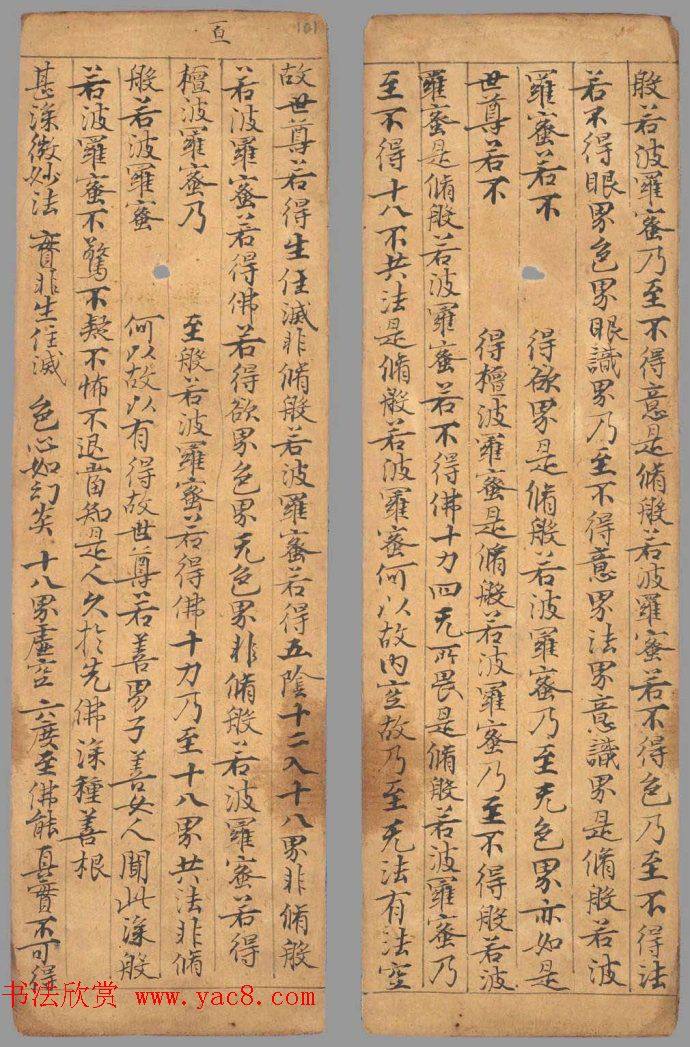 般若波羅蜜乃至不得意是脩般若波羅蜜若不得色乃至不得法
若不得眼界色界眼識界乃至不得意界法界意識界是脩般若波
羅蜜若不 得欲界是脩般若波羅蜜乃至无色界亦如是
世尊若不 得檀波羅蜜是脩般若波羅蜜乃至不得般若波
羅蜜是脩般若波羅蜜若不得佛十力四无所畏是脩般若波羅蜜乃
至不得十八不共法是脩般若波羅蜜何以故內空故乃至无法有法空
101
故世尊若得生住滅非脩般若波羅蜜若得五陰十二入十八界非脩般
若波羅蜜若得佛若得欲界色界无色界非脩般若波羅蜜若得
檀波羅蜜乃 至般若波羅蜜若得佛十力乃至十八界共法非脩
般若波羅蜜 何以故以有得故世尊若善男子善女人聞此深般
若波羅蜜不驚不疑不怖不退當知是人久於先佛深種善根
甚深微妙法 實非生住滅 色心如幻炎 十八界虛空 六度至佛能 真實不可得
书法欣赏 www.yac8.com